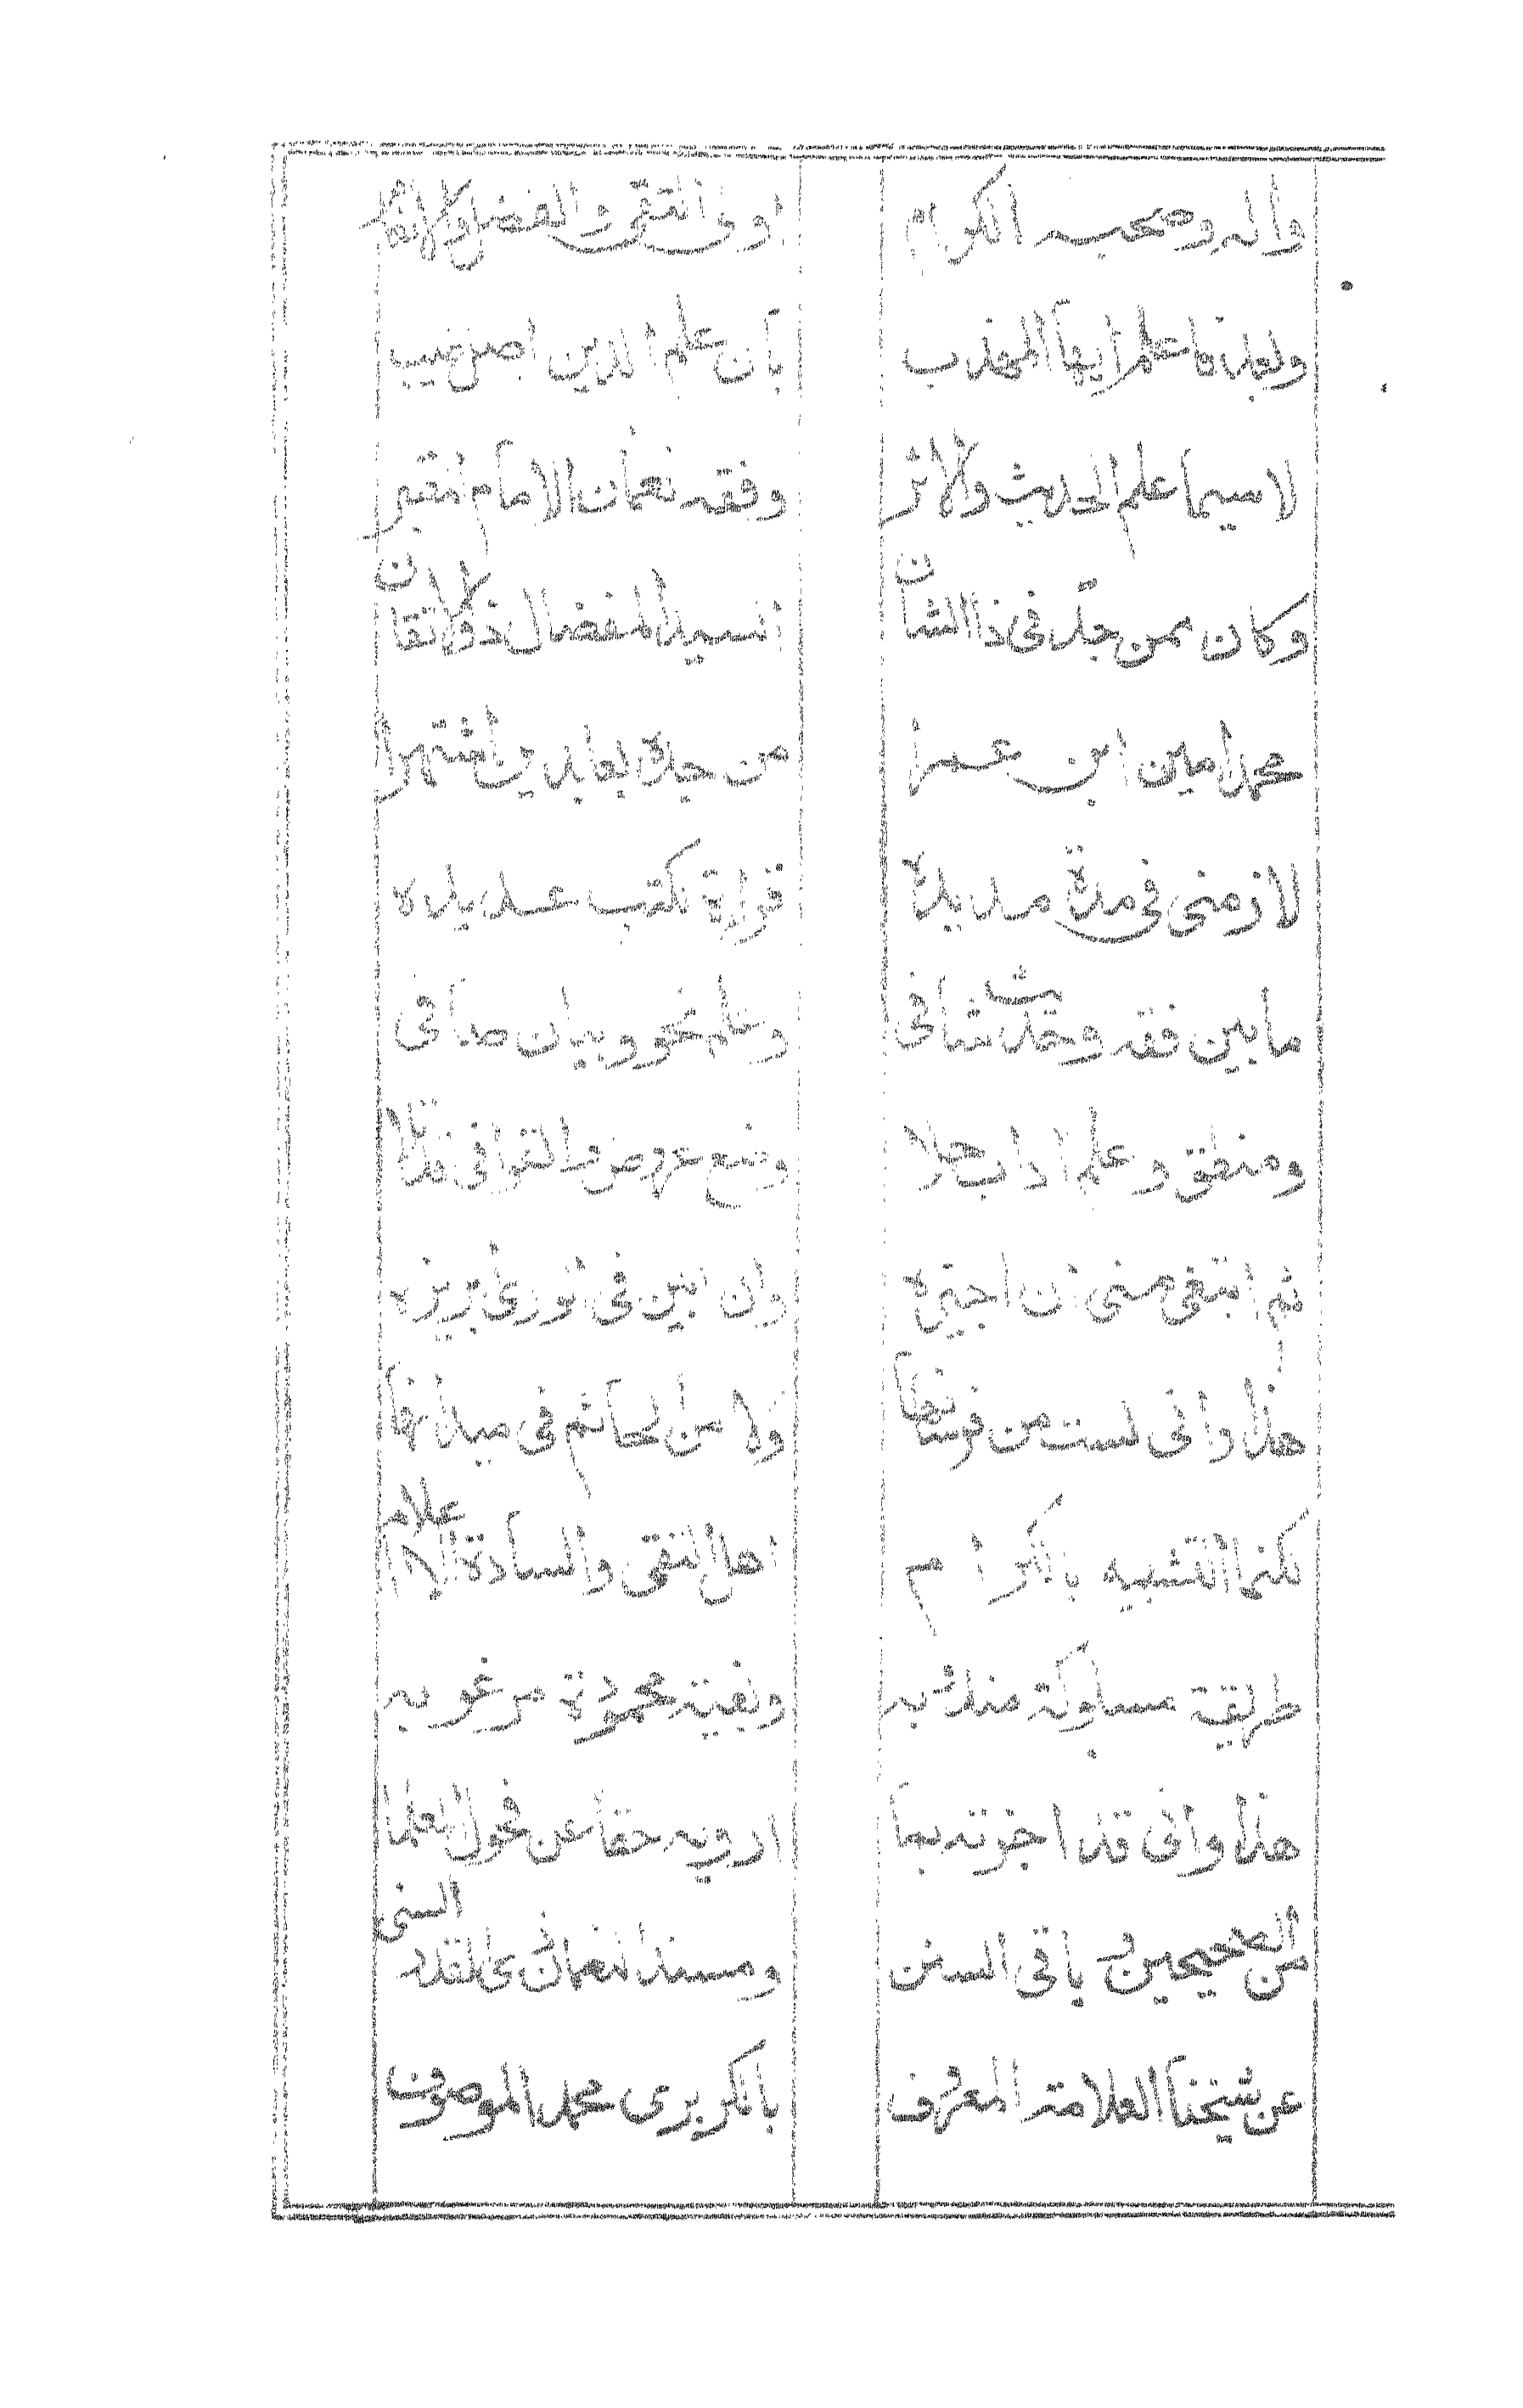 واله وصحبه الكرام اولى التقى والفضل والانعام
وبعد فاعلم ايها المهذب بان علم الدين اصل طيب
لاسيما علم الحديث والاثر وفقه نعمان الامام
وكان ممن جد فى ذا الشان السيد المفضال ذو الاتقان
محمد امين ابن عمرا من جده بعابدين اشتهرا
لازمنى فى مدة مديدة قراءة لكتب عديده
ما بين فقه وحديث شافى وعلم نحو وبيان صافى
ومنطق وعلم اداب حلا ومع عروض والقوافى قد تلا
ثم ابتغى منى ان اجيزه وان ابين فى
هذا وانى لست من فرسانها ولا من فى ميدانها
لكنما التشبيه بالكرام اهل التقى والسادة الاعلام
طريقة مسلوكة وبغية محمودة مرغوبه
هذا وانى قد اجزته بما ارويه حقا عن فحول العلما
من الصحيحين وباقى السنن ومسند النعمان ذى القدر السنى
عن شيخنا العلامة المعروف بالكزبرى محمد الموصوف